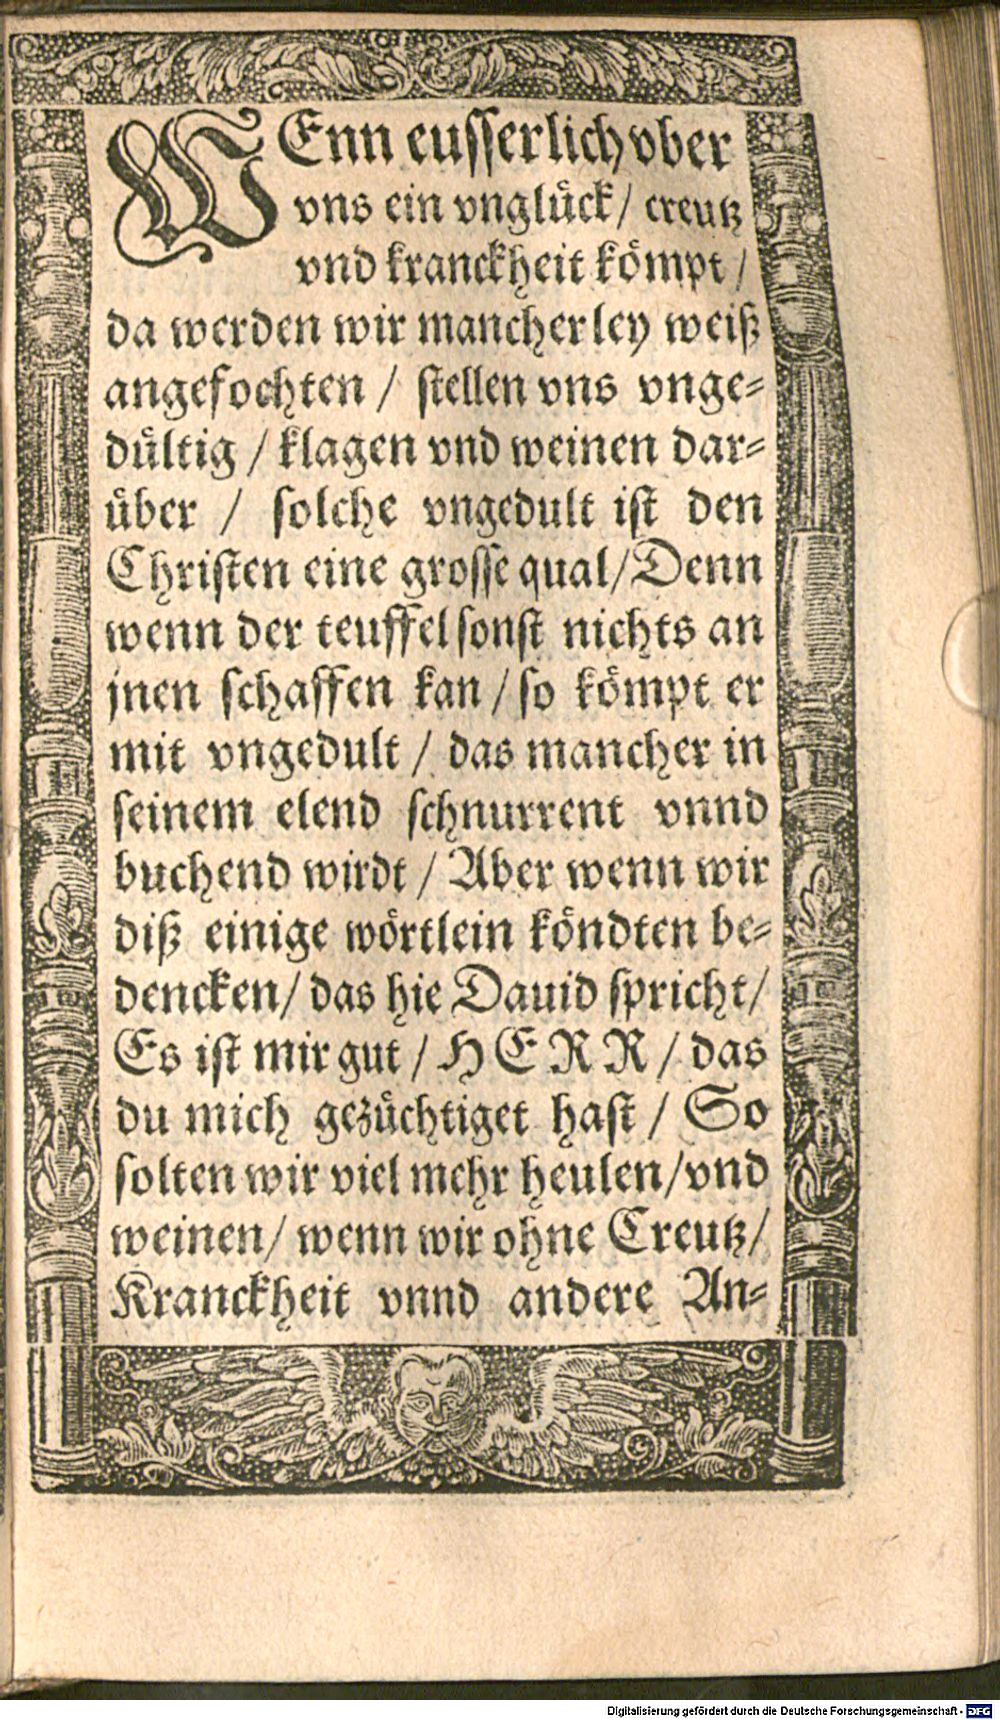 WEnn eusserlich vber
vns ein vnglück / creutz
vnd kranckheit kömpt /
da werden wir mancherley weiß
angefochten / stellen vns vnge⸗
dültig / klagen vnd weinen dar⸗
über / solche vngedult ist den
Christen eine grosse qual / Denn
wenn der teuffel sonst nichts an
jnen schaffen kan / so kömpt er
mit vngedult / das mancher in
seinem elend schnurrent vnnd
buchend wirdt / Aber wenn wir
diß einige wörtlein köndten be⸗
dencken / das hie Dauid spricht /
Es ist mir gut / HERR / das
du mich gezüchtiget hast / So
solten wir viel mehr heulen / vnd
weinen / wenn wir ohne Creutz /
Kranckheit vnnd andere An⸗
Digitalisierung gefördert durch die Deutsche Forschungsgemeinschaft - DFG